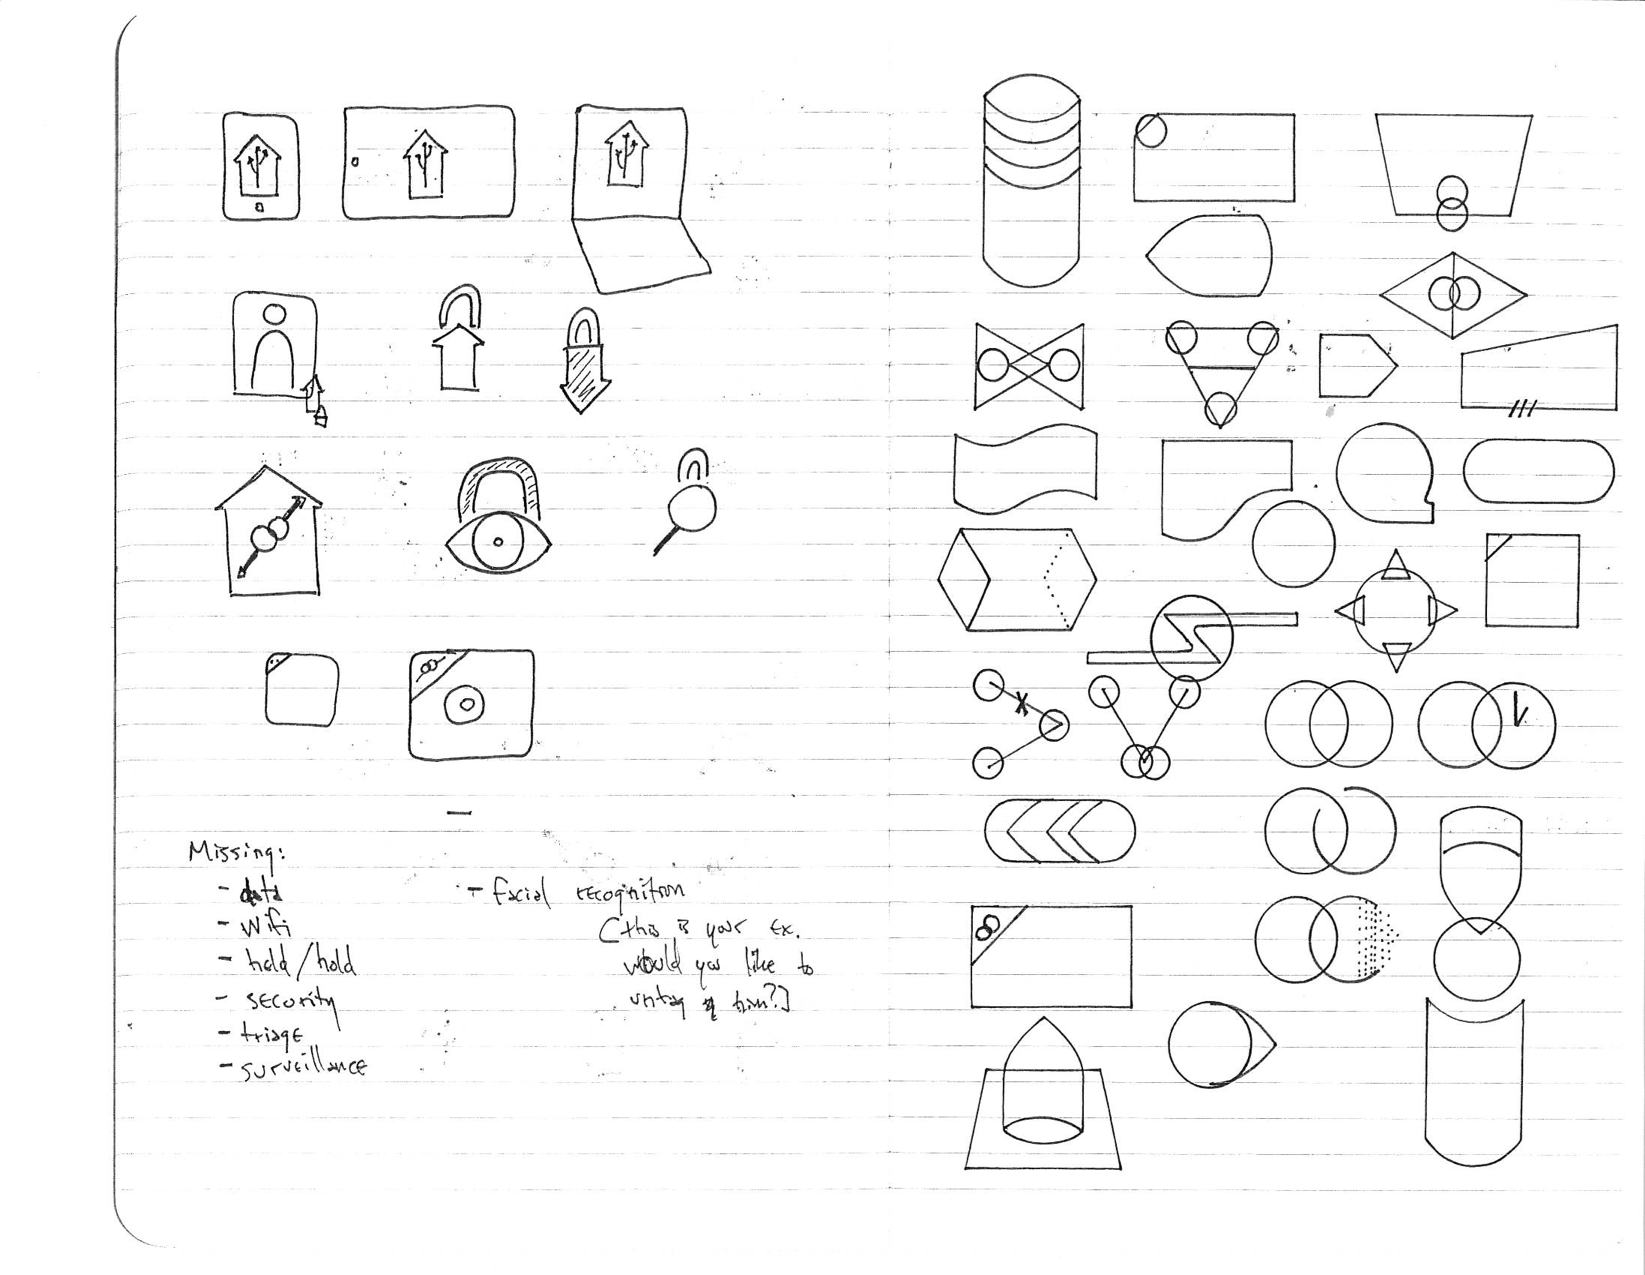 Missing:
- data
- Wifi
- held/hold
- security
- triage
- surveillance
- facial recognition
[this is your ex.
would you like to
untag him?]